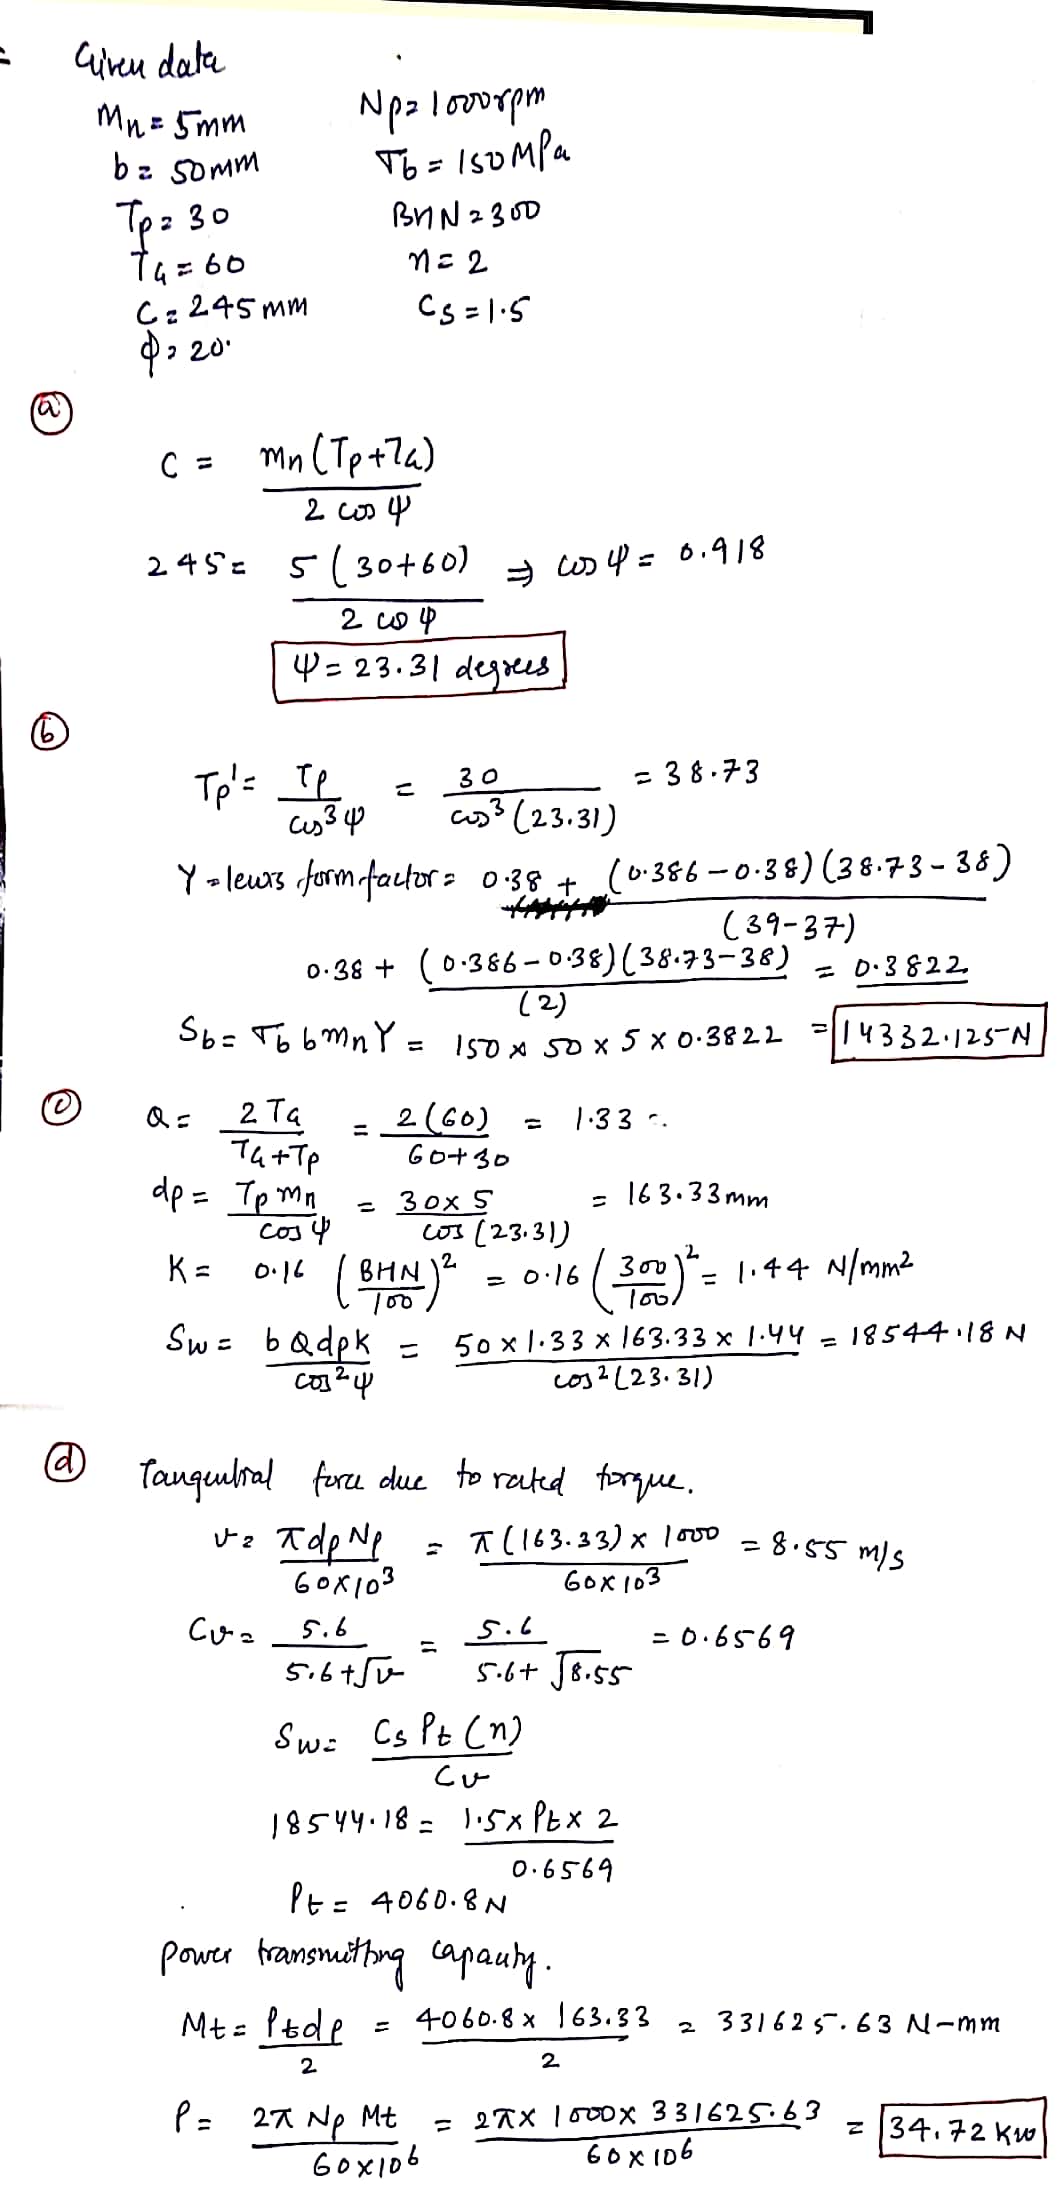 Given data
Mn = 5mm
Np = 1000rpm
b = 50mm
σb = 150MPa
Tp = 30
BHN = 300
TG = 60
n = 2
C = 245mm
Cs = 1.5
ϕ = 20°
(a)
C = Mn(Tp+TG) / 2 cos ψ
245 = 5(30+60) / 2 cos ψ ⇒ cos ψ = 0.918
ψ = 23.31 degrees
(b)
Tp' = Tp / cos³ψ = 30 / cos³(23.31) = 38.73
Y = lewis form factor = 0.38 + (0.386 – 0.38)(38.73 – 38) / (39-37)
0.38 + (0.386 – 0.38)(38.73 – 38) / (2) = 0.3822
Sb = σb b mn Y = 150 x 50 x 5 x 0.3822 = 14332.125 N
(c) Q = 2TG / TG+Tp = 2(60) / 60+30 = 1.33
dp = Tp mn / cos ψ = 30x5 / cos (23.31) = 163.33mm
K = 0.16 (BHN / 100)² = 0.16 (300 / 100)² = 1.44 N/mm²
Sw = b Q dp k / cos²ψ = 50 x 1.33 x 163.33 x 1.44 / cos²(23.31) = 18544.18 N
(d) Tangential force due to rated torque.
v = π dp Np / 60x10³ = π(163.33) x 1000 / 60x10³ = 8.55 m/s
Cv = 5.6 / 5.6+√v = 5.6 / 5.6+ √8.55 = 0.6569
Sw = Cs Pt (n) / Cv
18544.18 = 1.5x Pt x 2 / 0.6569
Pt = 4060.8 N
power transmitting capacity.
Mt = Pt dp / 2 = 4060.8 x 163.33 / 2 = 331625.63 N-mm
P = 2π Np Mt / 60x10⁶ = 2πx 1000x 331625.63 / 60x10⁶ = 34.72 kw